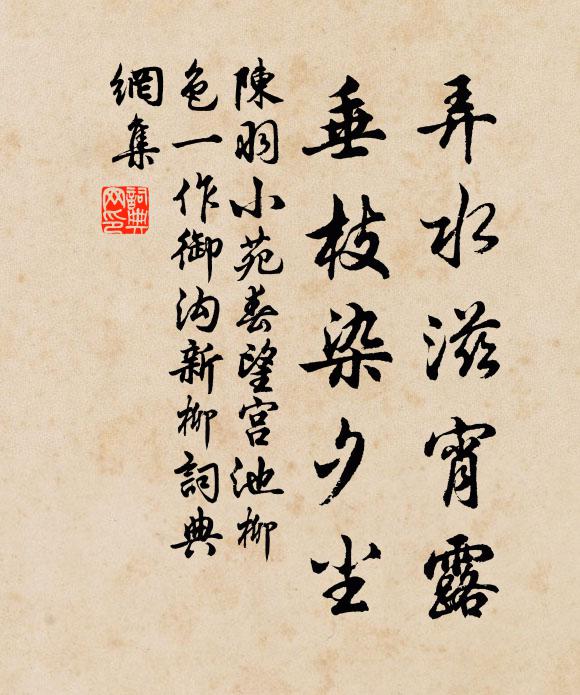 弄水滋宵露
垂枝染夕尘
陳羽小苑春望宫池柳
色一作御沟新柳詞典
網集